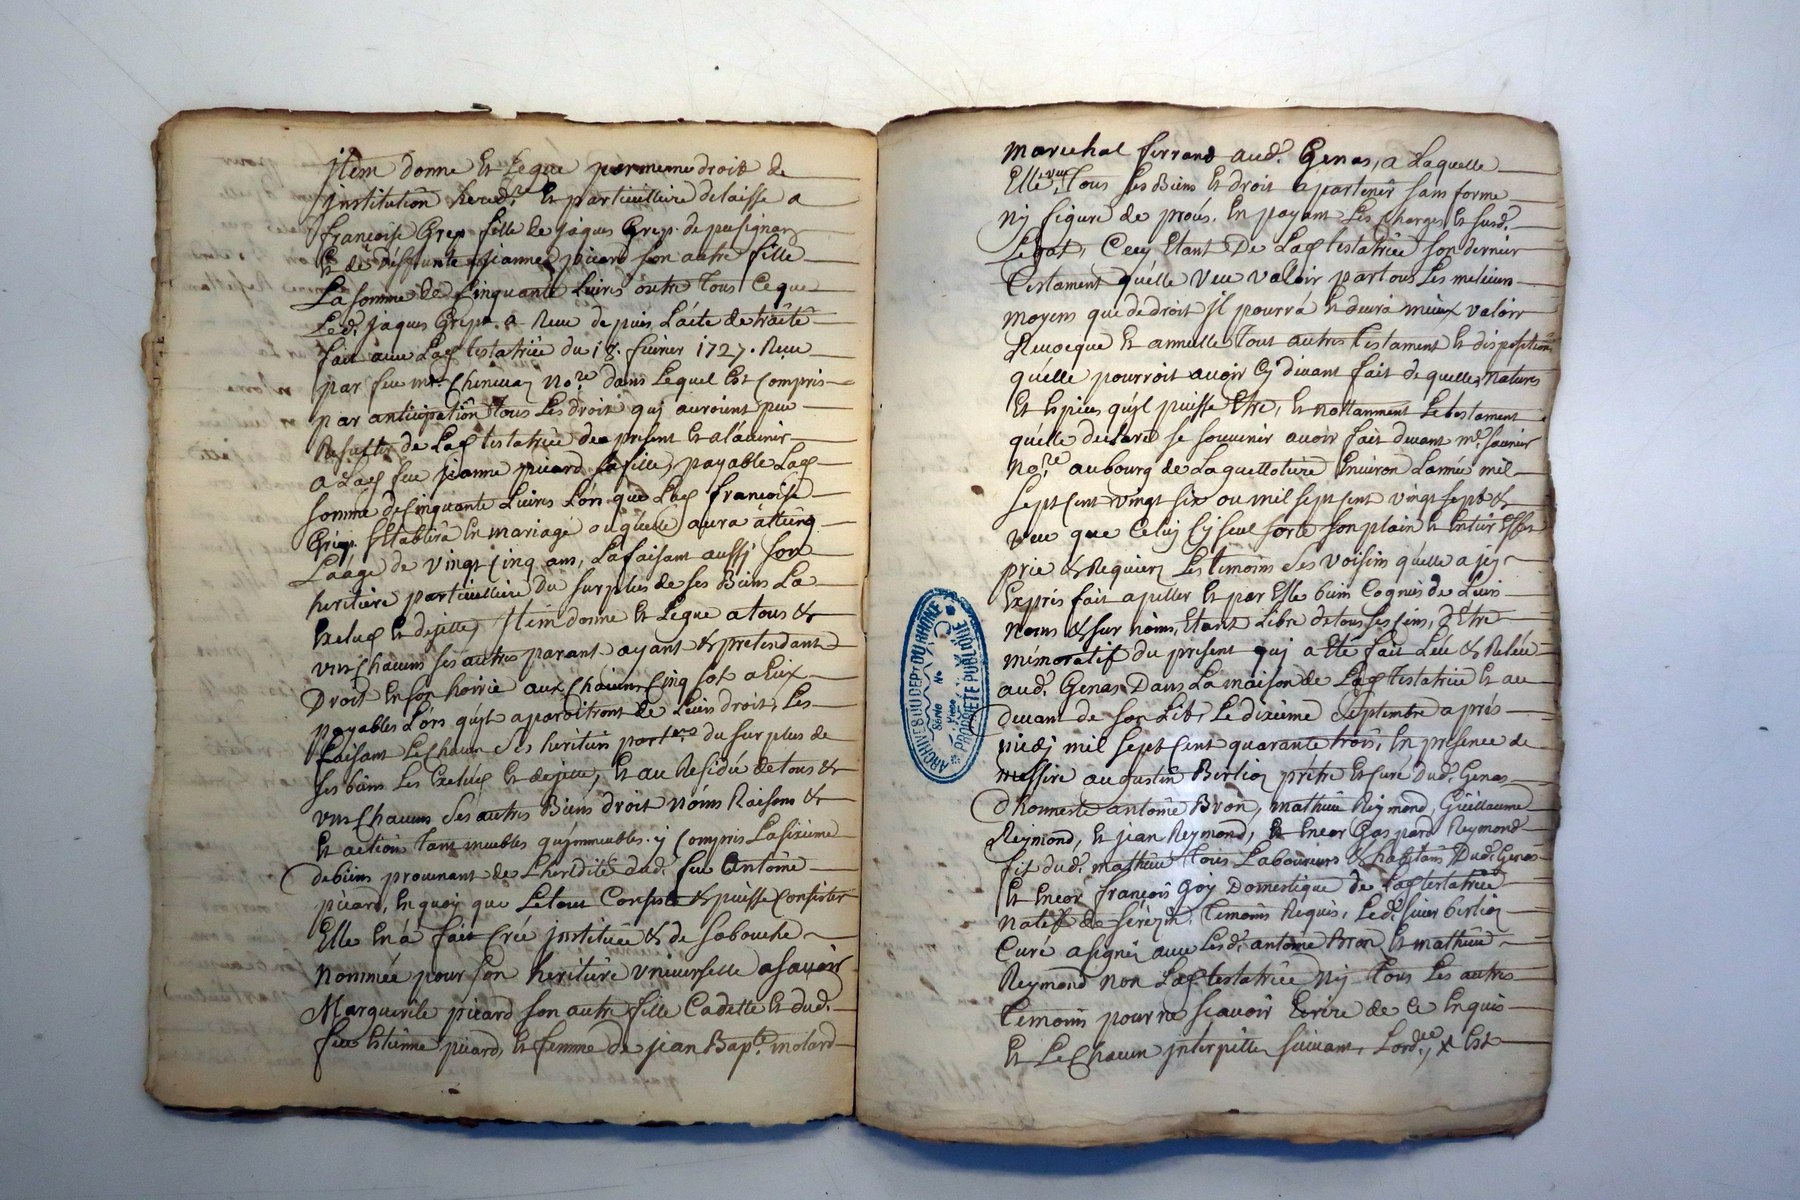 Item donne Et Legue par meme droit de
institution hered.re Et particuilliere delaisse a
francoise Grep fille de jaques Grep. de pusignan
Et de deffunte jeanne picard son autre fille
La somme de Cinquante Livres outre tous Ceque
Led. jaques Grep. a Receu depuis L'acte de traité
fait avec Lad testatrice du 18. fevrier 1727. Receu
par feu me. Chenevaz No.re dans Lequel Est Compris
par anticipation tous Les droit quj auroient peu
Resulter de Lad testatrice de present Et alavenir
a Lad feu jeanne picard sa fille, payable Lad
somme de Cinquante Livres Lors que Lad francoise
Grep. s'Etablira En mariage ou qu'elle aura atteing
Laage de vingt Cinq ans, La faisant aussj son
heritiere particuilliere Du surplus de ses Biens La
Exclud Et dejette, Item donne Et Legue a tous &
vns Chacuns ses autres parant ayant & pretendant
Droit En son hoirie aux Chacuns Cinq sol a Eux
payables Lors qu'jl aparoitront de Leurs droit, Les
faisant Le Chacun ses heritiers part.res du surplus de
ses biens Les Exclud Et dejette, Et au Residu de tous &
vns Chacuns ses autres Biens droit Noms Raisons &
Et action tant meubles qu'jmmeubles. y Compris La sixieme
de biens provenant de L'heredité dud. feu Antoine
picard, En quoy que Le tout Consiste & puisse Consister
Elle En a fait Créé jnstituée & de sa bouche
nommée pour son heritiere vniverselle a sçavoir
Marguerite picard son autre fille Cadette Et dud.
feu Estienne picard, Et femme de jean Bap.te molard
marechal ferrand aud. Genas, a Laquelle
Elle veut tous ses Biens Et droit apartenir sans forme
nj figure de procés. En payant Les Charges Et susd.
Legat, Cecy Etant De Lad testatrice son dernier
testament qu'elle veu valoir par tous Les melieurs
moyens que de droit jl pourra Et devra mieux valoir
Revocque Et annulle tout autres testament Et disposition
qu'elle pourroit avoir Cy devant fait de quelles natures
Et Espices qu'jl puisse Etre, Et nottanment Le testament
qu'elle declare se souvenir avoir fait devant me. saunier
No.re au bourg de Laguillotiere Environ L'année mil
sept Cent vingt six ou mil sept Cent vingt sept &
veu que Celuj Cy seul sorte son plain Et Entier Effet
prie & Requiert Les temoins ses voisins qu'elle a jcy
Exprés fait apeller Et par Elle bien Cognus de Leurs
noms & sur noms, Etant Libre de tous ses sens, d'Etre
mémoratif du present quj a Eté fait Leu & Releu
aud. Genas Dans La maison de Lad testatrice Et au
devant de son Lit, Le dixieme septembre aprés
midj mil sept Cent quarante trois, En presence de
messire augustin Berlioz prétre Et Curé dud. Genas
d'honneste antoine Bron, mathieu Reymond, Guillaume
Reymond, Et jean Reymond, Et Encor Gaspard Reymond
fils dud. mathieu tous Laboureurs & habitans Dud. Genas
Et Encor françois Goy Domestique de Lad testatrice
natif de temoins Requis, Led. sieur berlioz
Curé a signé avec Lesd. antoine Bron Et mathieu
Reymond non Lad testatrice Nj tous Les autres
temoins pour ne scavoir Ecrire de ce Enquis
Et Le Chacun jnterpellé suivant, L'ord.ce, & Est
ARCHIVES DU DEPT DU RHÔNE
Série
No
Pièce
PROPRIÉTÉ PUBLIQUE